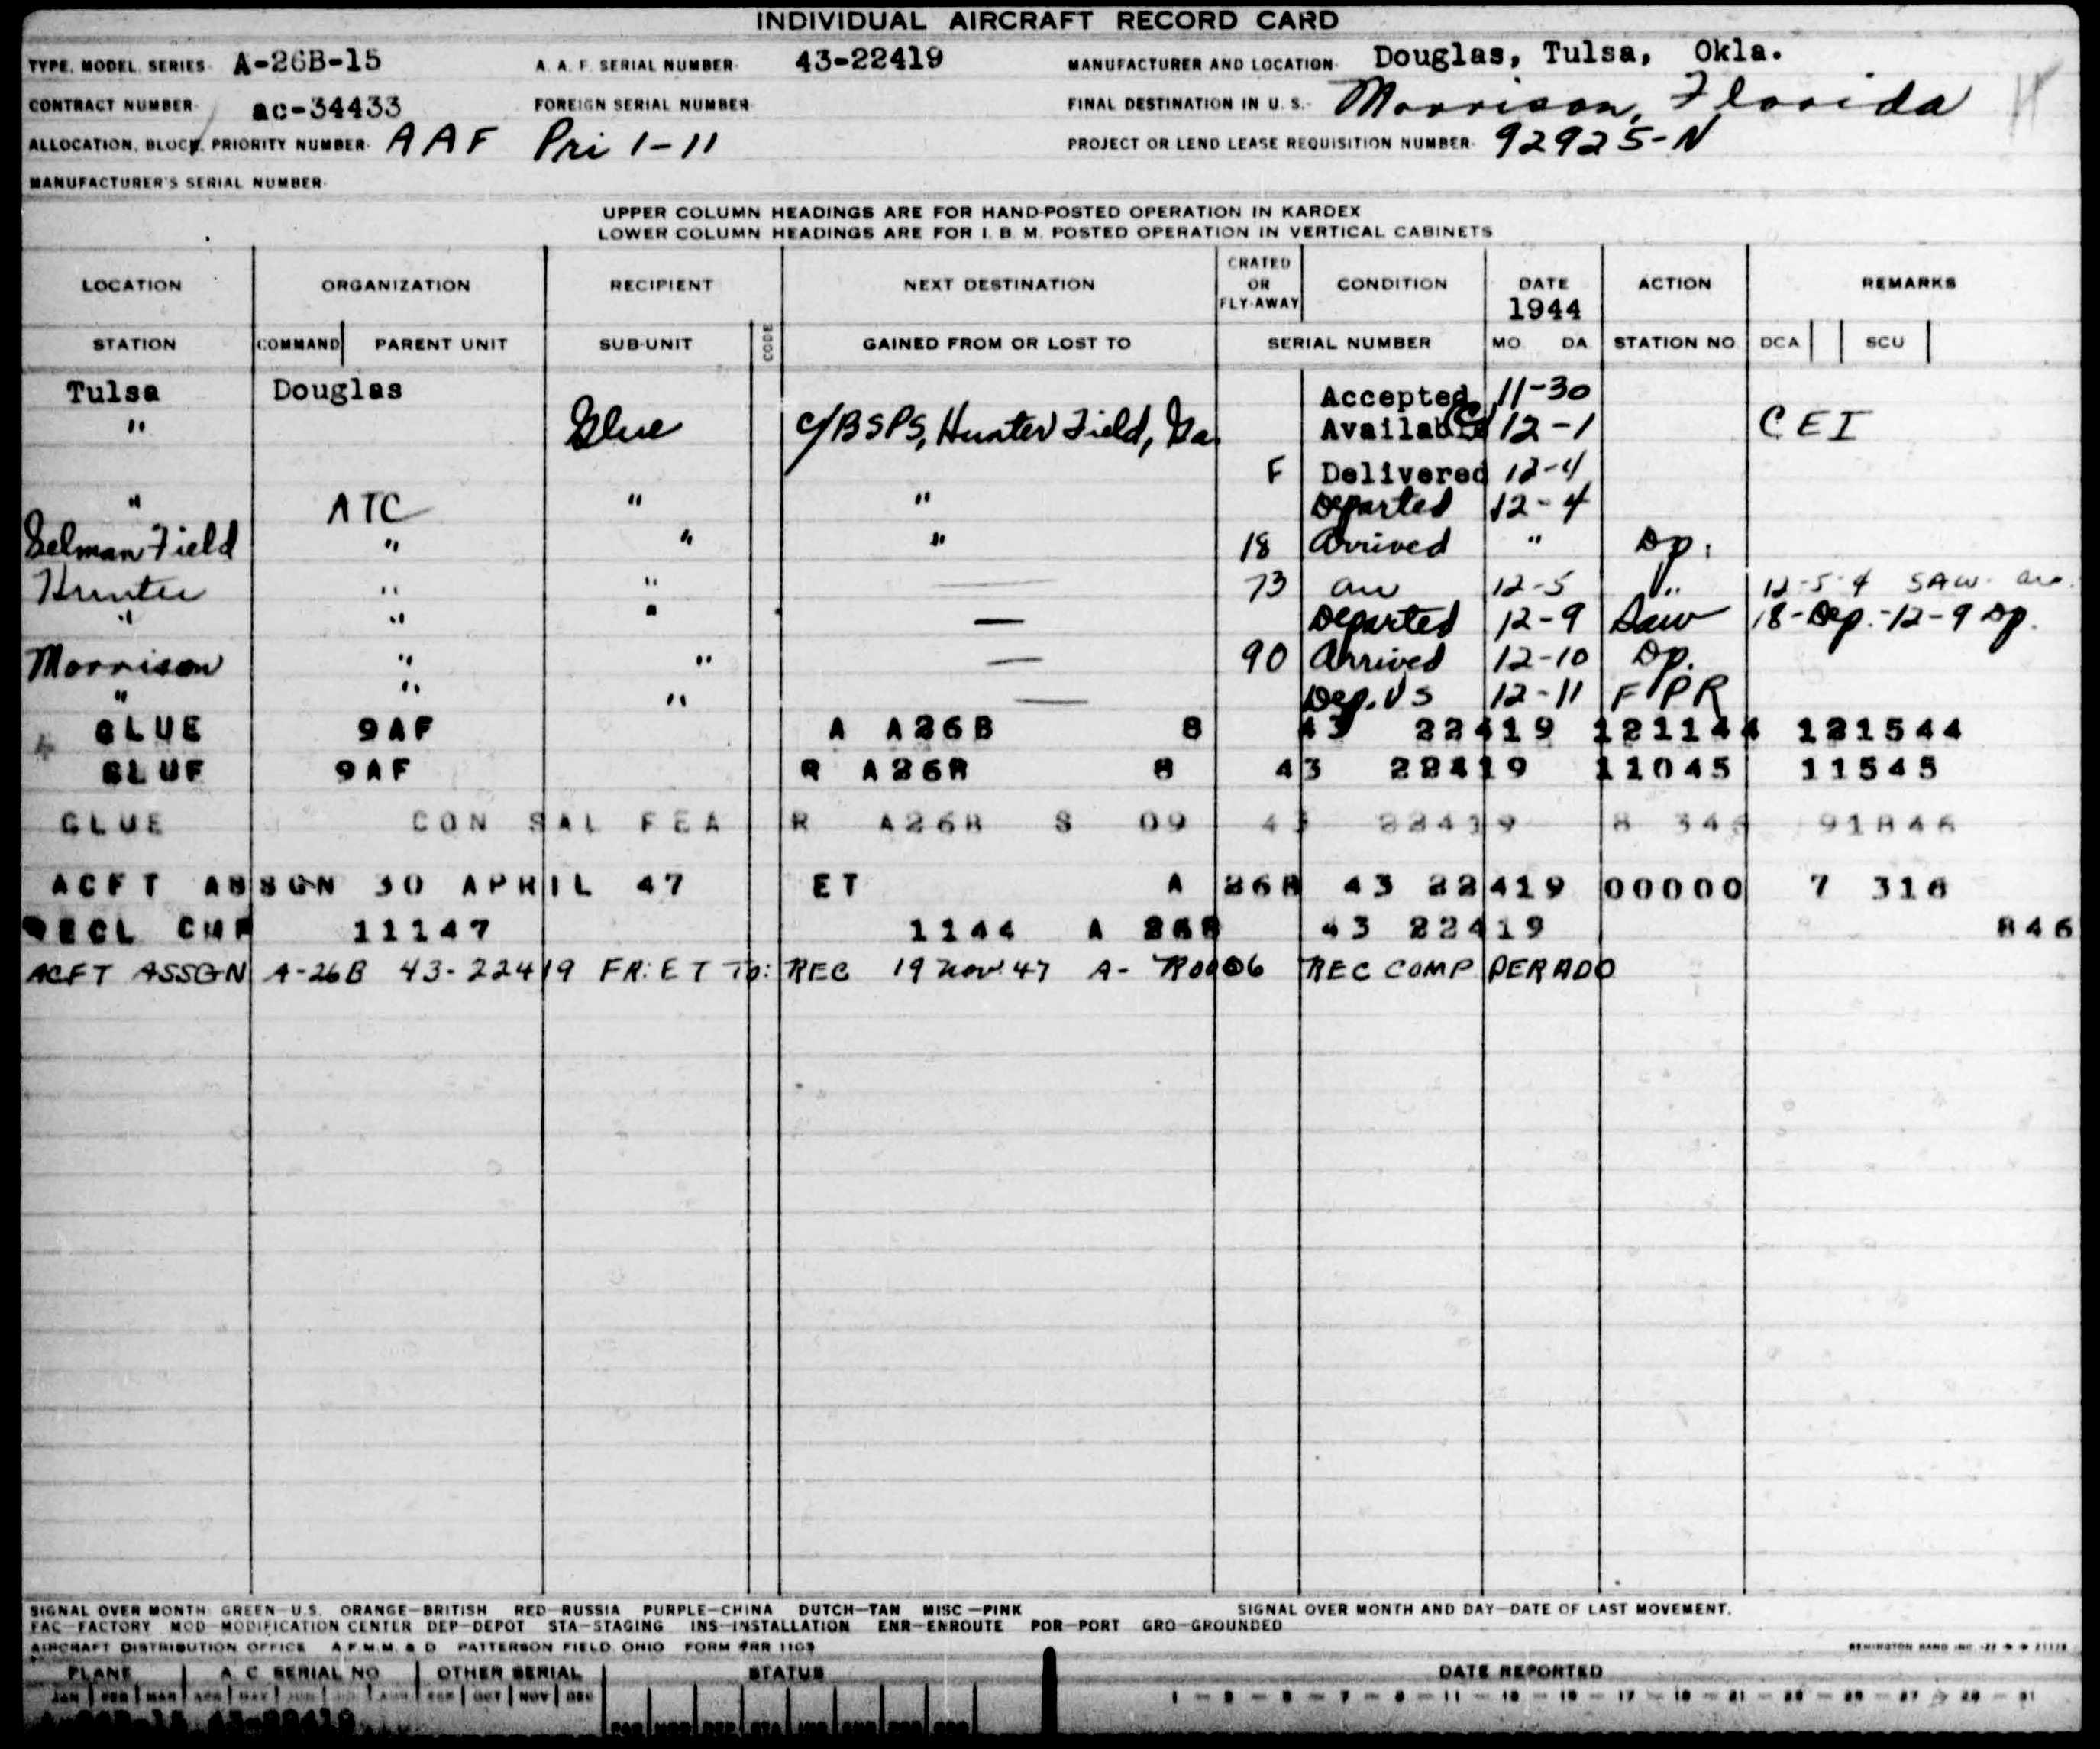 INDIVIDUAL AIRCRAFT RECORD CARD
TYPE, MODEL, SERIES- A-26B-15 A. A. F. SERIAL NUMBER- 43-22419 MANUFACTURER AND LOCATION- Douglas, Tulsa, Okla.
CONTRACT NUMBER- ac-34433 FOREIGN SERIAL NUMBER- FINAL DESTINATION IN U. S.- Morrison, Florida
ALLOCATION, BLOCK, PRIORITY NUMBER- AAF Pri 1-11 PROJECT OR LEND LEASE REQUISITION NUMBER- 92925-N
MANUFACTURER'S SERIAL NUMBER-
UPPER COLUMN HEADINGS ARE FOR HAND-POSTED OPERATION IN KARDEX
LOWER COLUMN HEADINGS ARE FOR I. B. M. POSTED OPERATION IN VERTICAL CABINETS
LOCATION ORGANIZATION RECIPIENT NEXT DESTINATION CRATED OR FLY-AWAY CONDITION DATE 1944 ACTION REMARKS
STATION COMMAND PARENT UNIT SUB-UNIT CODE GAINED FROM OR LOST TO SERIAL NUMBER MO. DA. STATION NO. DCA SCU
Tulsa Douglas Accepted 11-30
" Glue c/BSPS, Hunter Field, Ga. Available 12-1 CEI
F Delivered 12-4
" ATC " " Departed 12-4
Selman Field " " " 18 Arrived " Dp.
Hunter " " — 73 arr 12-5 " 12-5-4 SAW
" " " — Departed 12-9 Saw 18-Dep.-12-9 Dp.
Morrison " " — 90 Arrived 12-10 Dp.
" " " — Dep. US 12-11 FPR
GLUE 9AF A A26B 8 43 22419 121144 121544
GLUE 9AF R A26B 8 43 22419 11045 11545
GLUE CON SAL FEA R A26B S 09 43 22419 8 346 91846
ACFT ASSGN 30 APRIL 47 ET A 26B 43 22419 00000 7 316
RECL CMP 11147 1144 A 26B 43 22419 846
ACFT ASSGN A-26B 43-22419 FR: ET TO: REC 19 Nov 47 A- R0006 REC COMP PER ADO
SIGNAL OVER MONTH GREEN—U.S. ORANGE—BRITISH RED—RUSSIA PURPLE—CHINA DUTCH—TAN MISC—PINK SIGNAL OVER MONTH AND DAY—DATE OF LAST MOVEMENT.
FAC—FACTORY MOD—MODIFICATION CENTER DEP—DEPOT STA—STAGING INS—INSTALLATION ENR—ENROUTE POR—PORT GRO—GROUNDED
AIRCRAFT DISTRIBUTION OFFICE A.F.M.M. & D PATTERSON FIELD, OHIO FORM #RR 1103 REMINGTON RAND INC.
PLANE A C SERIAL NO OTHER SERIAL STATUS DATE REPORTED
JAN FEB MAR APR MAY JUN JUL AUG SEP OCT NOV DEC